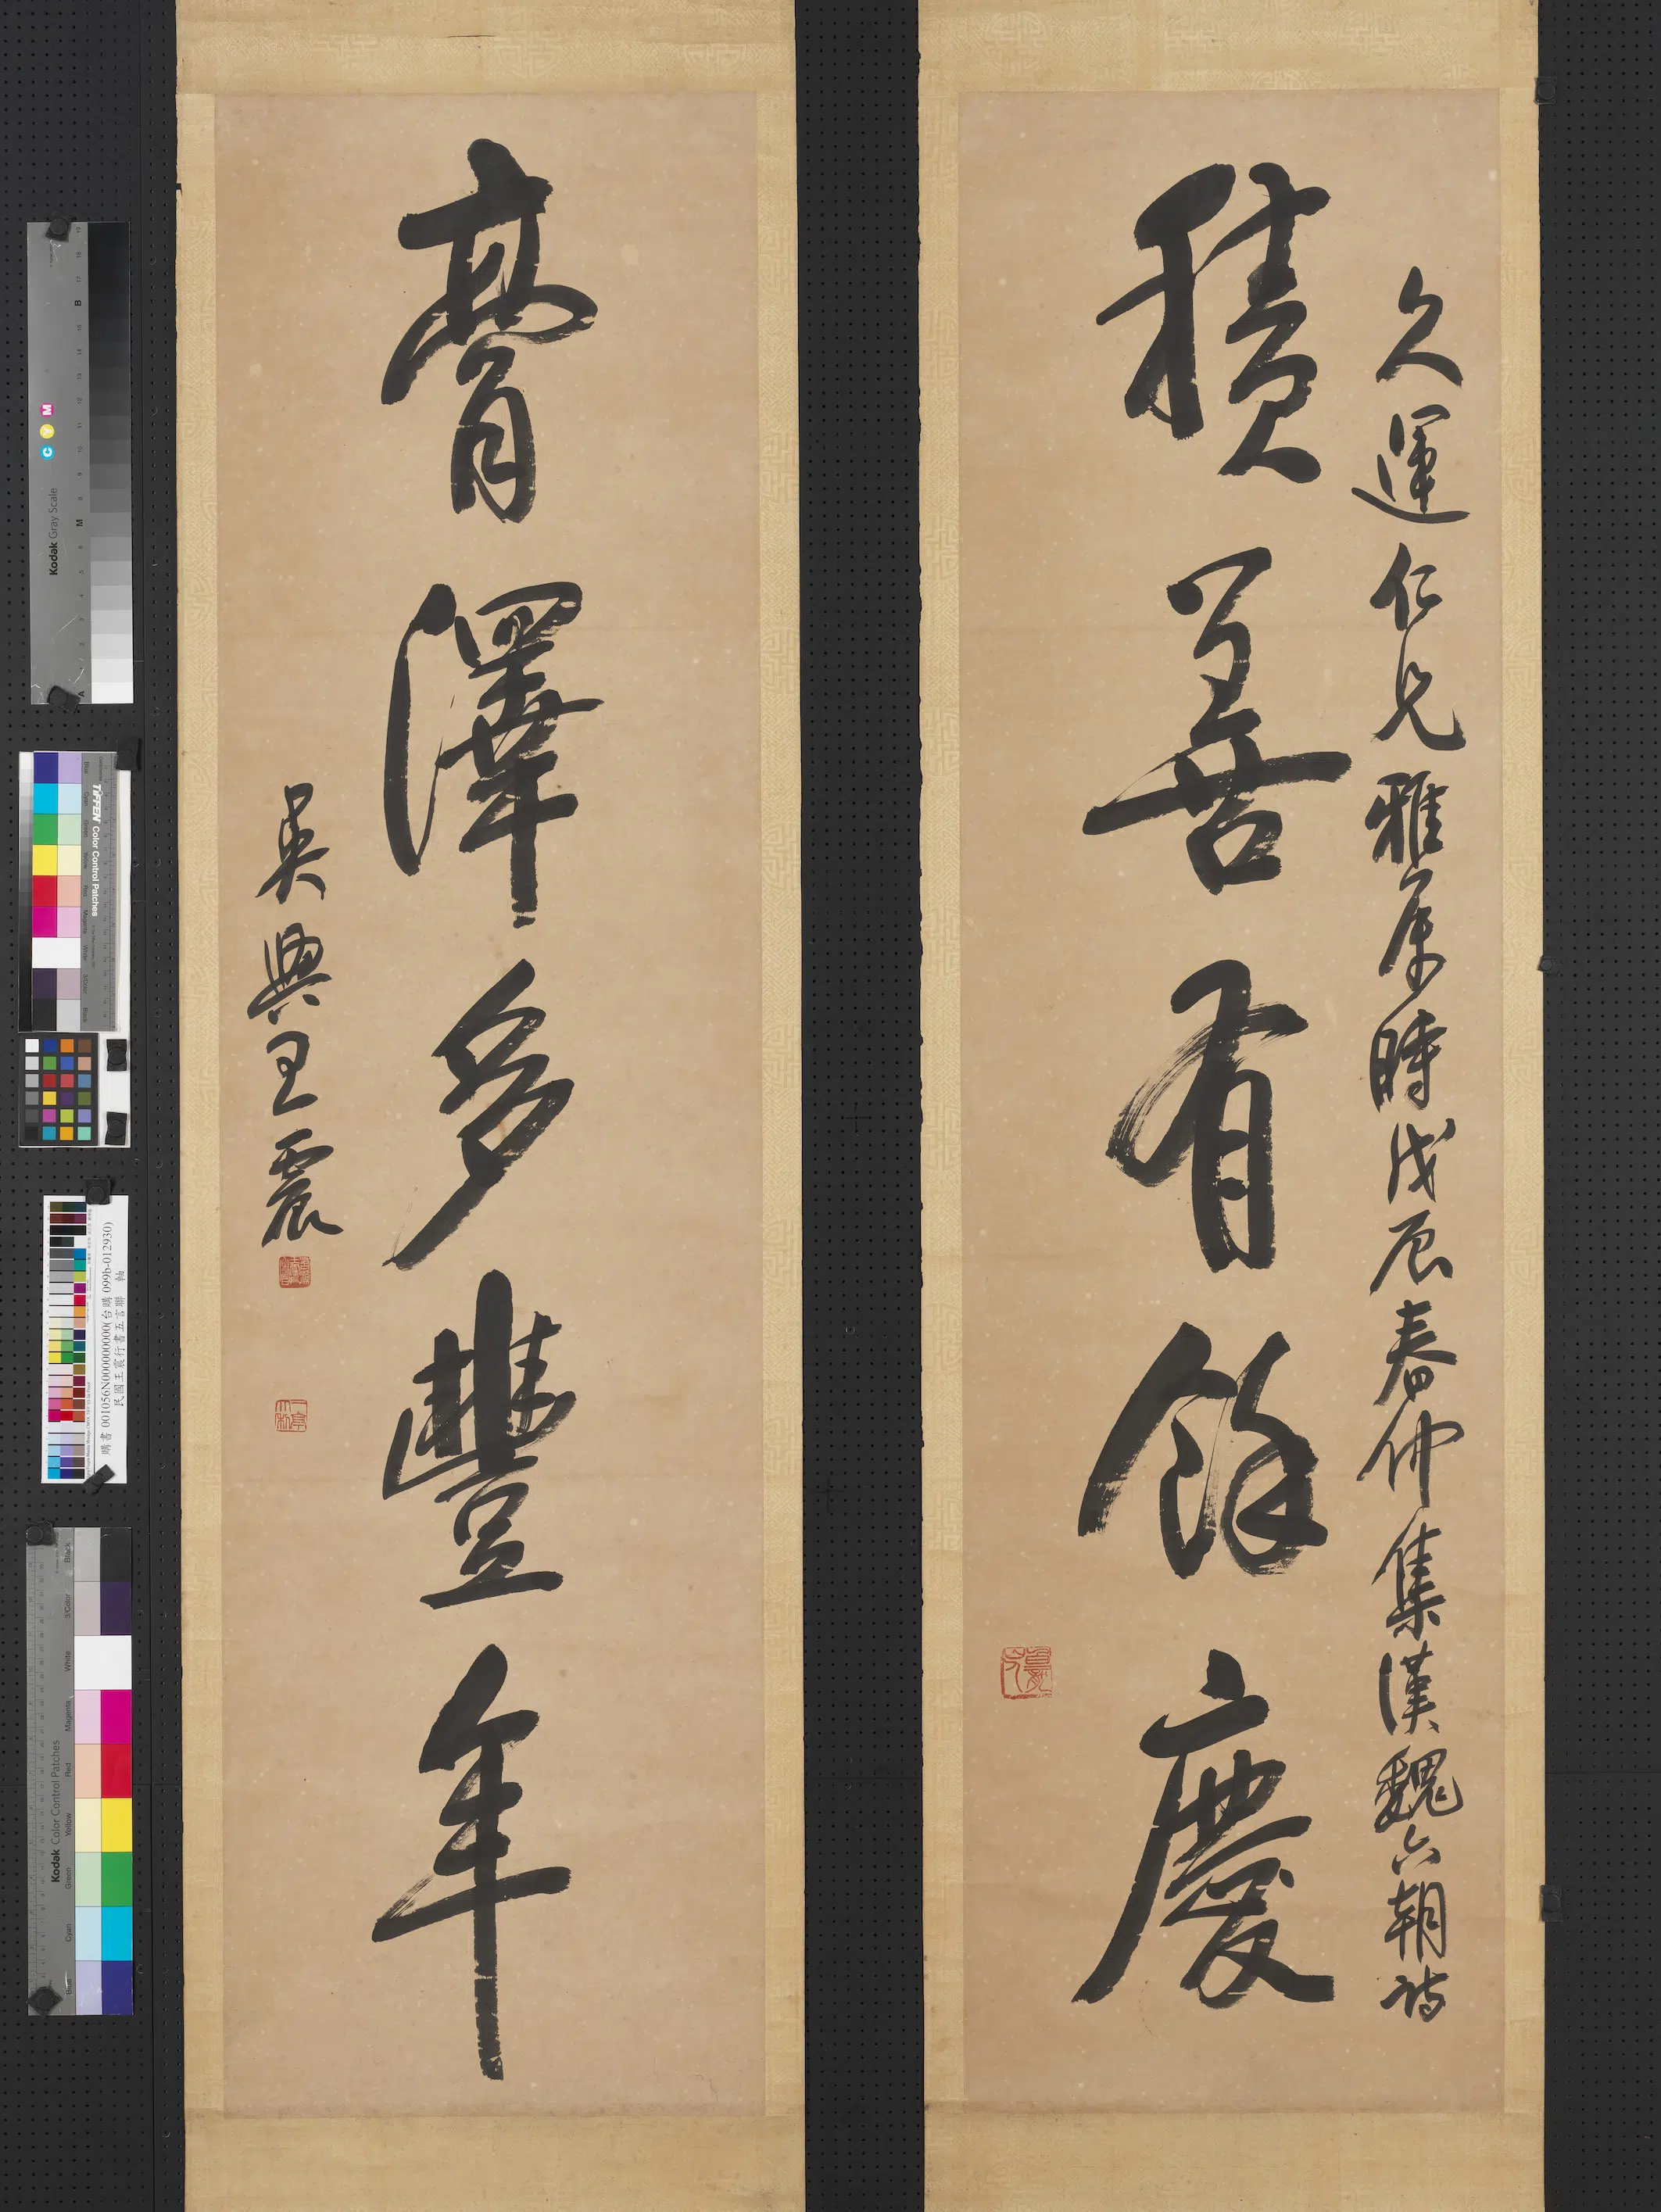 久運仁兄雅屬時戊辰春仲集漢魏六朝詩
積善有餘慶
膏澤多豐年
吳興王震
Kodak Gray Scale
C Y M
TIFFEN Color Control Patches
購書 001056N000000000(台購 099b-012930)
民國王震行書五言聯 軸
Kodak Color Control Patches
Blue Cyan Green Yellow Red Magenta White 3/Color Black